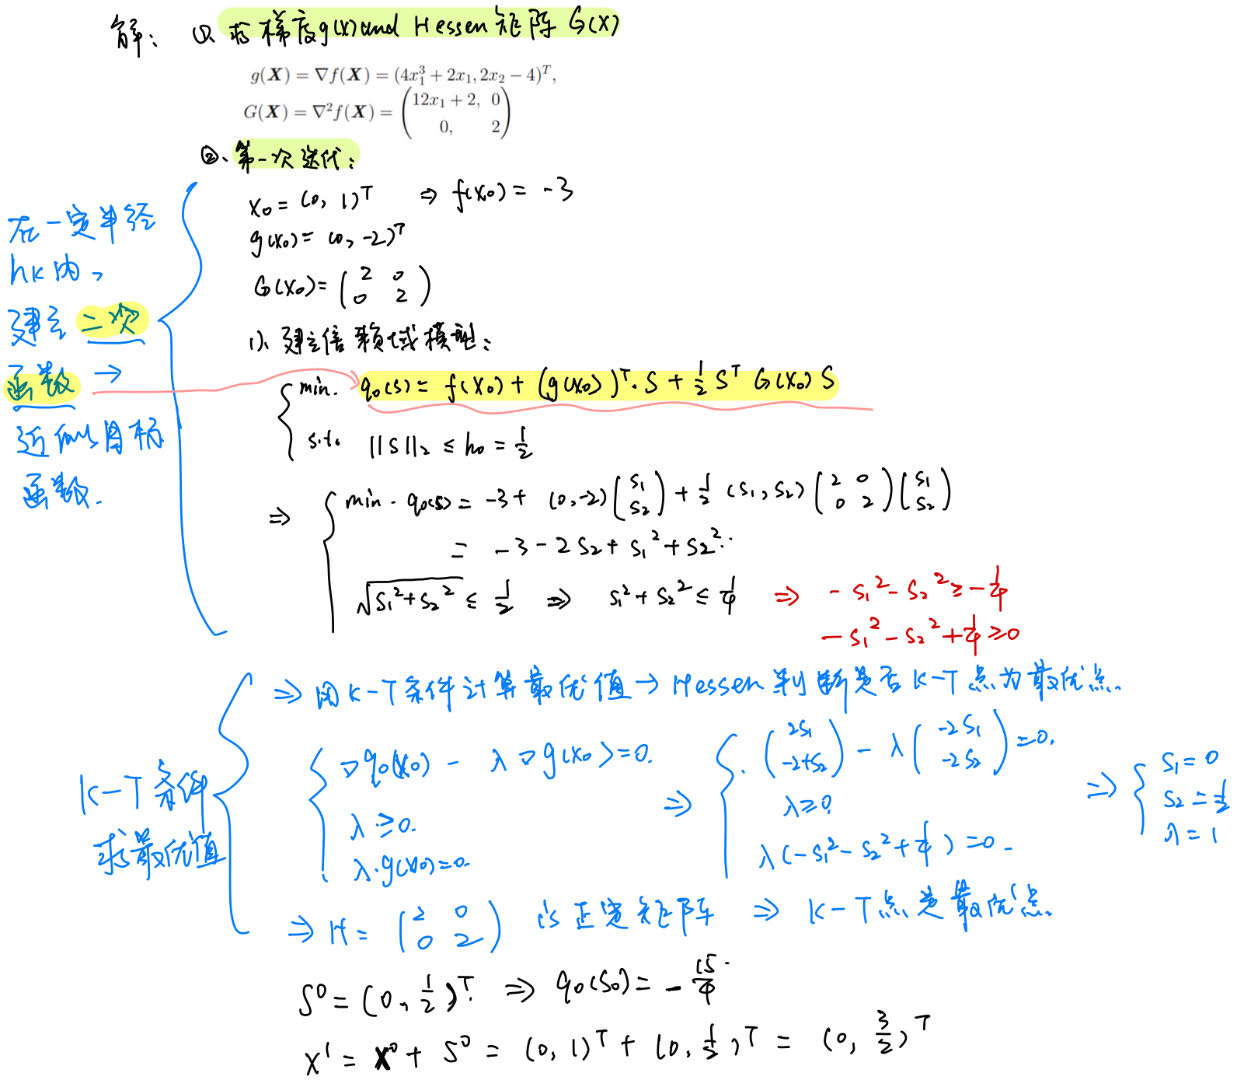 解： ①. 求梯度g(x)and Hessen矩阵 G(X)
g(X) = ∇f(X) = (4x₁³ + 2x₁, 2x₂ − 4)ᵀ,
G(X) = ∇²f(X) = (12x₁ + 2, 0
0, 2)
②. 第一次迭代：
X₀ = (0, 1)ᵀ ⇒ f(X₀) = -3
g(X₀) = (0, -2)ᵀ
G(X₀) = (2 0
0 2)
1). 建立信赖域模型：
min. q₀(s) = f(X₀) + (g(X₀))ᵀ·S + ½ Sᵀ G(X₀) S
s.t. ||S||₂ ≤ h₀ = ½
在一定半径
hk内，
建立二次
函数 →
近似目标
函数.
⇒ min. q₀(s) = -3 + (0,-2)(s₁
s₂) + ½ (s₁, s₂)(2 0
0 2)(s₁
s₂)
= -3 - 2s₂ + s₁² + s₂².
√(s₁²+s₂²) ≤ ½ ⇒ s₁² + s₂² ≤ ¼ ⇒ -s₁² - s₂² ≥ -¼
-s₁² - s₂² + ¼ ≥ 0
⇒ 用K-T条件计算最优值 → Hessen 判断是否K-T点为最优点.
K-T 条件
求最优值
∇q₀(x₀) - λ∇g(x₀) = 0.
λ ≥ 0.
λ·g(x₀) = 0.
⇒ (2s₁
-2+s₂) - λ(-2s₁
-2s₂) = 0.
λ ≥ 0.
λ(-s₁² - s₂² + ¼) = 0.
⇒ s₁ = 0
s₂ = ½
λ = 1
⇒ H = (2 0
0 2) 为正定矩阵 ⇒ K-T点是最优点.
S⁰ = (0, ½)ᵀ. ⇒ q₀(S₀) = -15/4
X¹ = X⁰ + S⁰ = (0, 1)ᵀ + (0, ½)ᵀ = (0, 3/2)ᵀ